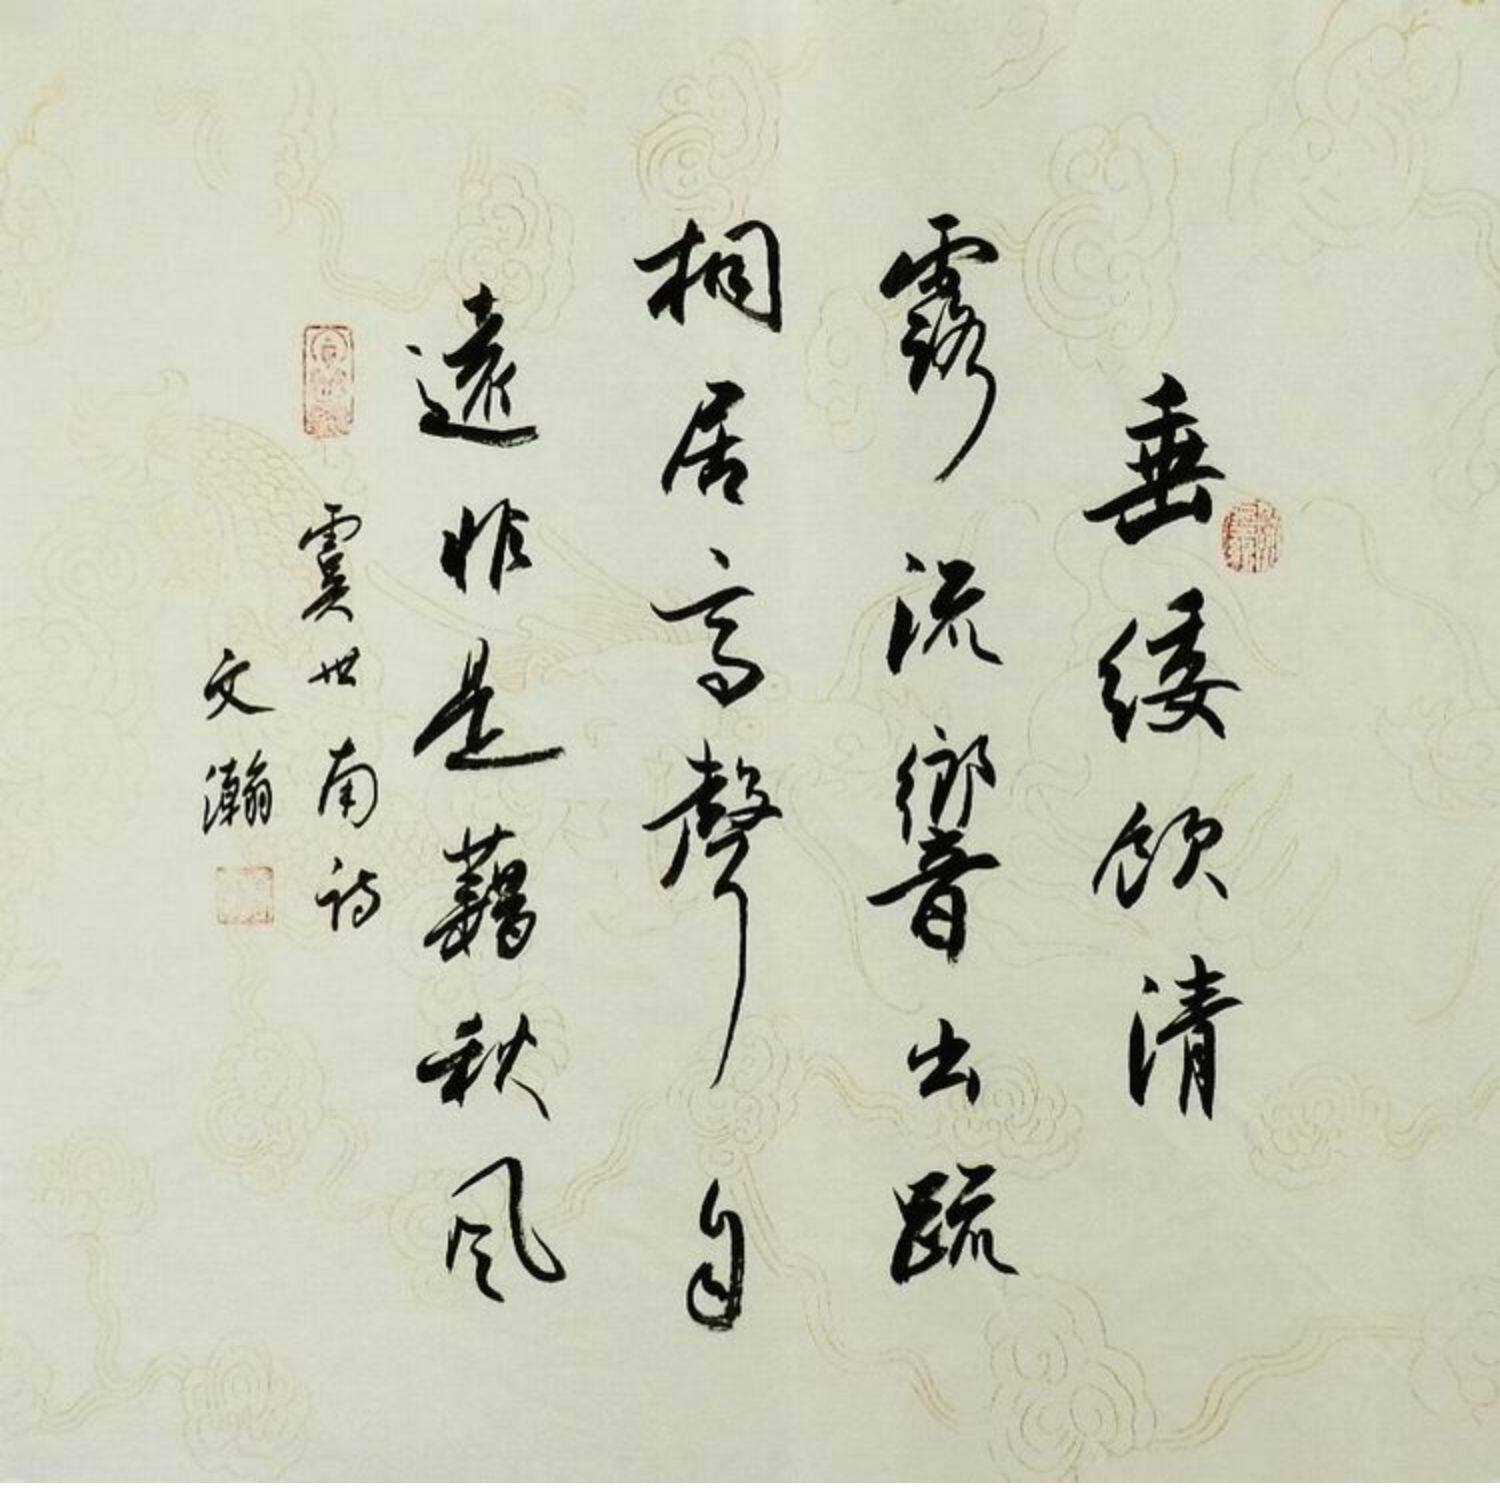 垂緌飲清
露流響出疏
桐居高聲自
遠非是藉秋風
虞世南詩
文瀚